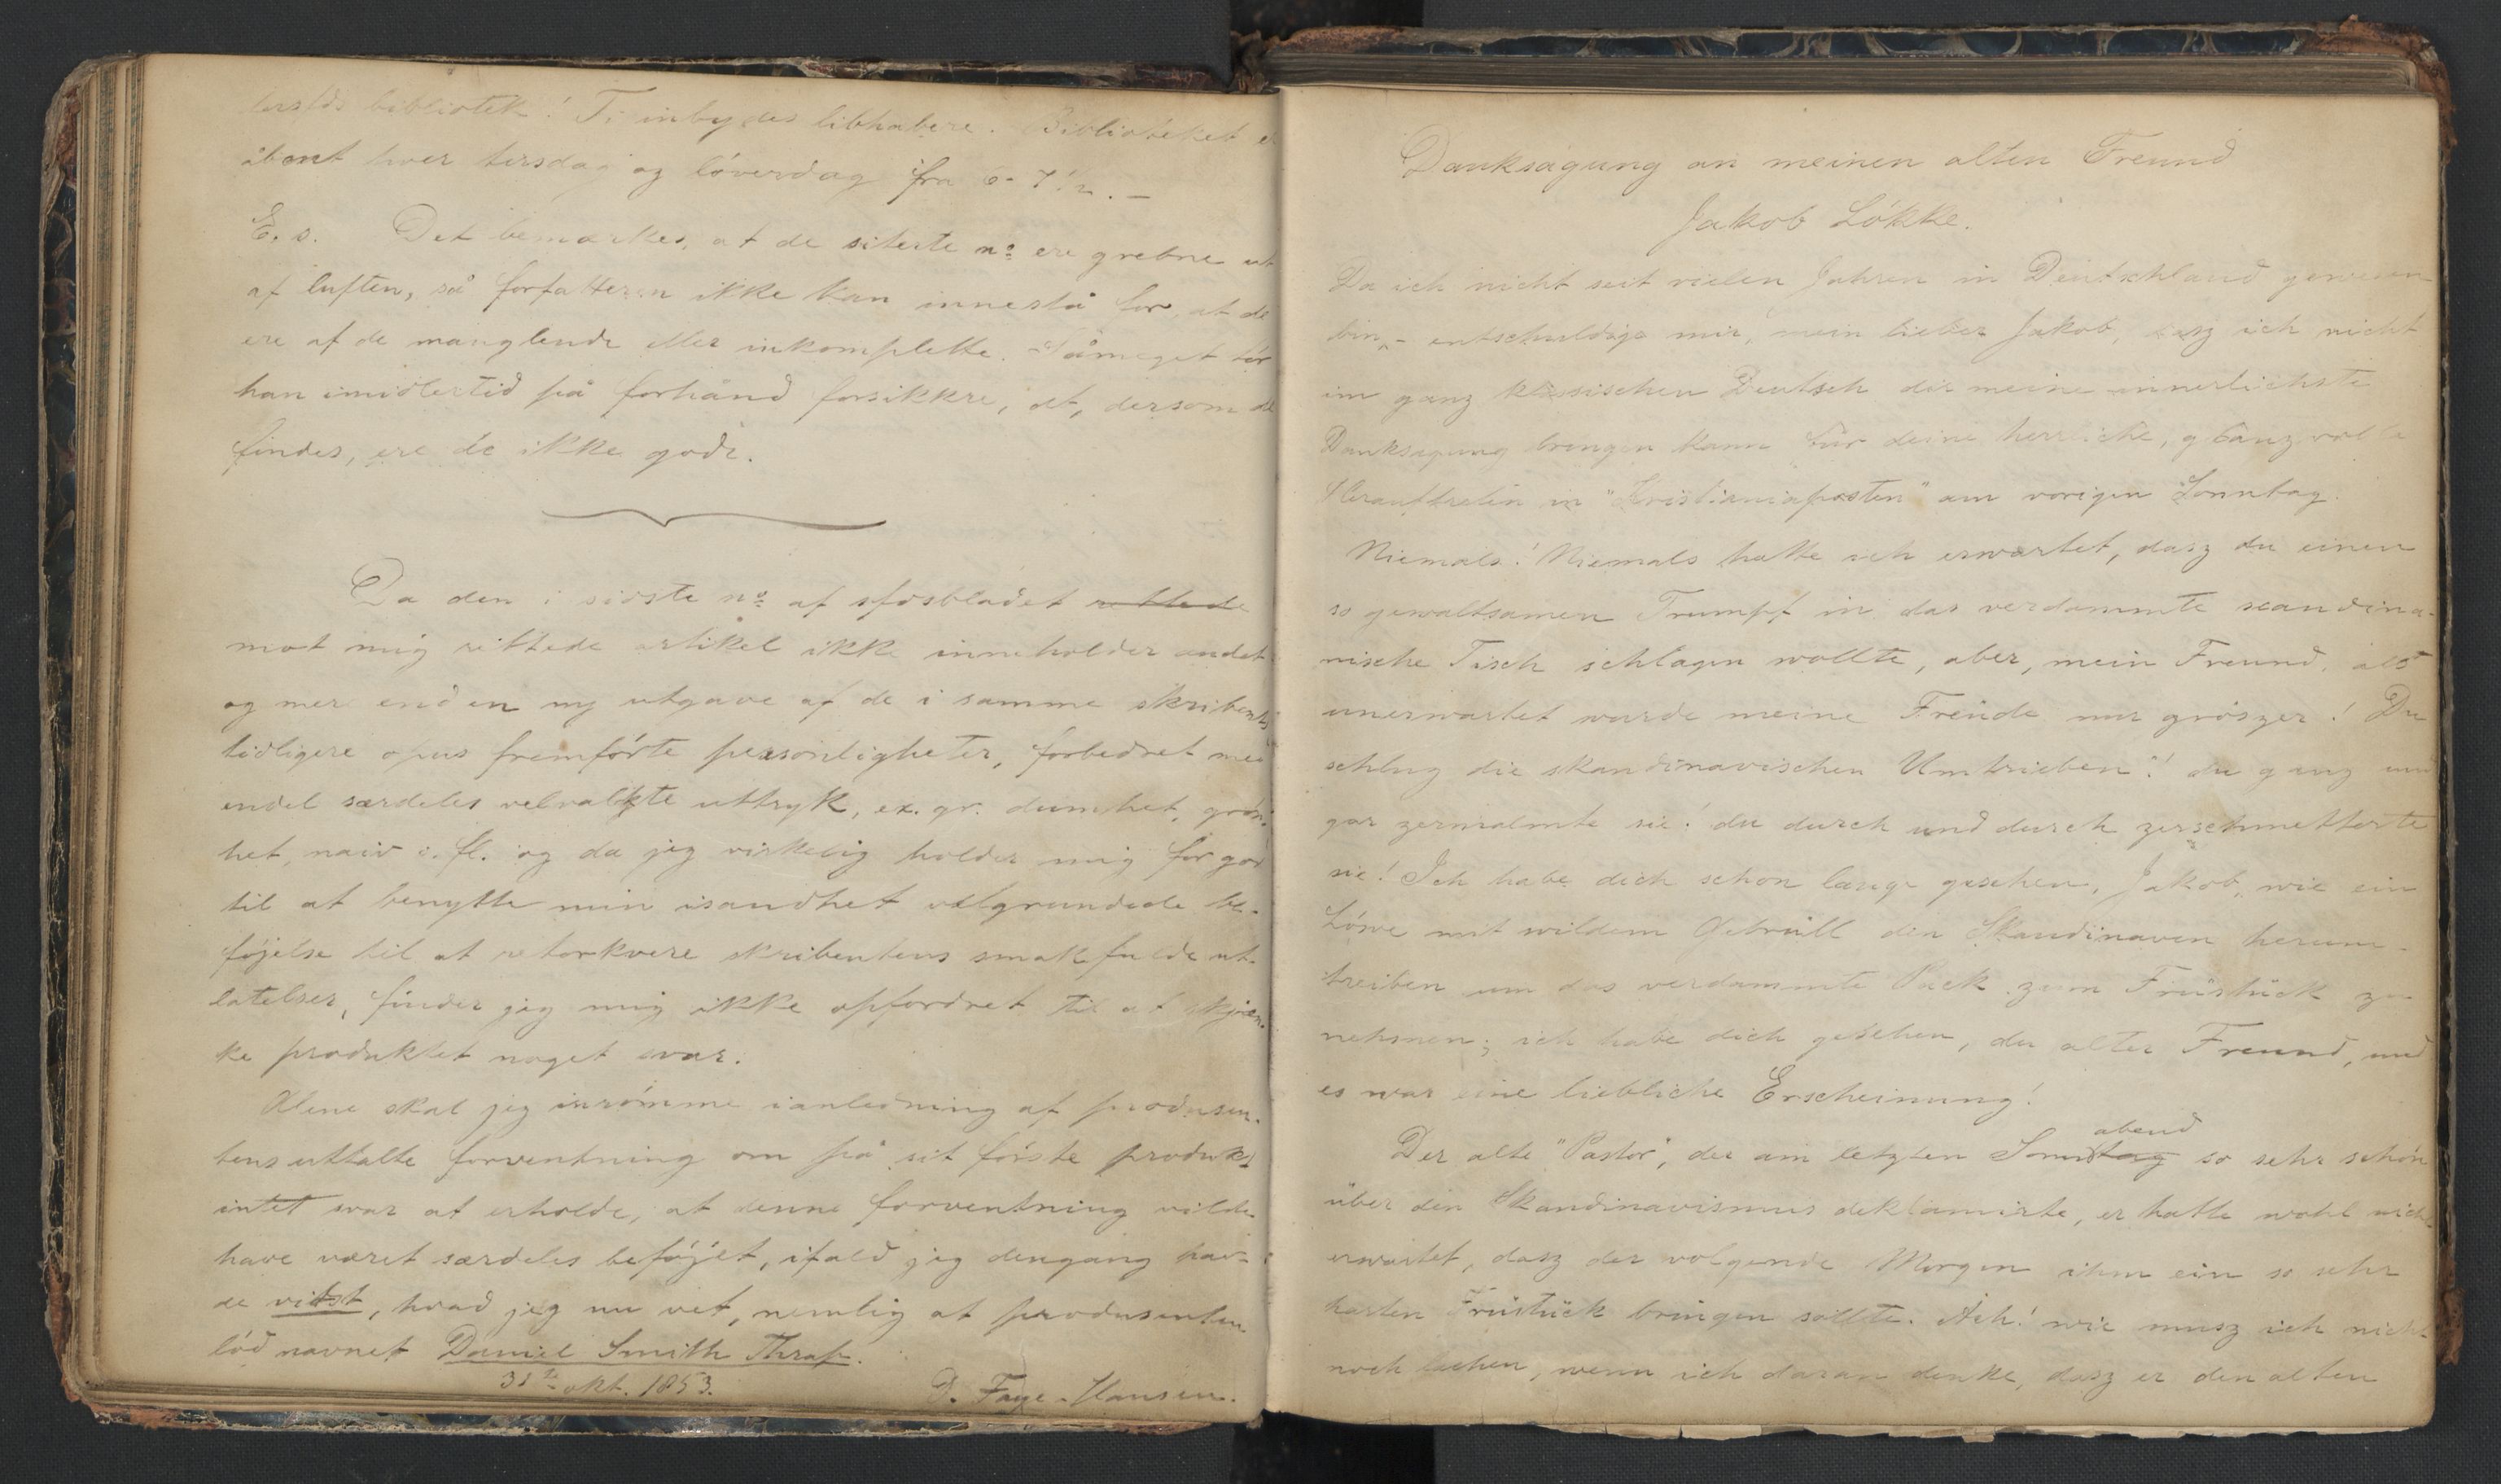 bibliotek! Ti inbydes libhabere. Biblioteket er
åbent hver tirsdag og lóverdag fra 6-7 1/2. —
E. s. Det bemærkes, at de siterte no ere grebne ut
af luften, så forfatteren ikke kan innestå for, at de
ere af de manglende eller inkomplette. Såmeget tór
han imidlertid på forhånd forsikkre, at, dersom de
findes, ere de ikke gode.
Da den i sidste no af sfdsbladet rettede
mot mig rettede artikel ikke inneholder andet
og mer end en ny utgave af de i samme skribents
tidligere opus fremfórte personligheter, forbedret med
endel særdeles velvalgte uttryk, ex. gr. dumhet, grón-
het, naiv o. fl. og da jeg virkelig holder mig for god
til at benytte min isandhet velgrundede be-
fójelse til at retorkvere skribentens smakfulde ut-
latelser, finder jeg mig ikke opfordret til at skjæn-
ke produktet noget svar.
Alene skal jeg inrómme ianledning af produsen-
tens uttalte forventning om på sit fórste produkt
intet svar at erholde, at denne forventning vilde
have været særdeles befójet, ifald jeg dengang hav-
de vidst, hvad jeg nu vet, nemlig at produsenten
lód navnet Daniel Smith Thrap.
31te okt. 1853.
D. Faye-Hansen.
Danksagung an meinen alten Freund
Jakob Lókke.
Da ich nicht seit vielen Jahren in Deutschland gewesen
bin, - entschuldige mir, mein lieber Jakob, dasz ich nicht
im ganz klassischen Deutsch dir meine innerlichste
Danksagung bringen kann für deine herrliche, glanzvolle
in "Kristianiaposten" am vorigen Sonntag.
Niemals! Niemals hatte ich erwartet, dasz du einen
so gewaltsamen Trumpf in das verdammte scandina-
vische Tisch schlagen wollte, aber, mein Freund, als
unerwartet wurde meine Freude nur grószer! Du
schlug die skandinavischen Umtrieben! du ganz und
gar zermalmte sie! du durch und durch zerschmetterte
sie! Ich habe dich schon lange gesehen, Jakob, wie ein
Lówe mit wildem Gebrüll den Skandinaven herum-
treiben um das verdammte Pack zum Früstück zu
nehmen; ich habe dich gesehen, du alter Freund, und
es war eine liebliche Erscheinung!
Der alte "Pastor", der am letzten Sonntag abend so sehr schón
über den Skandinavismus deklamirte, er hatte wohl nicht
erwartet, dasz der volgende Morgen ihm ein so sehr
harten Früstück bringen sollte. Ach! wie musz ich nicht
noch lachen, wenn ich daran denke, dasz er den alten